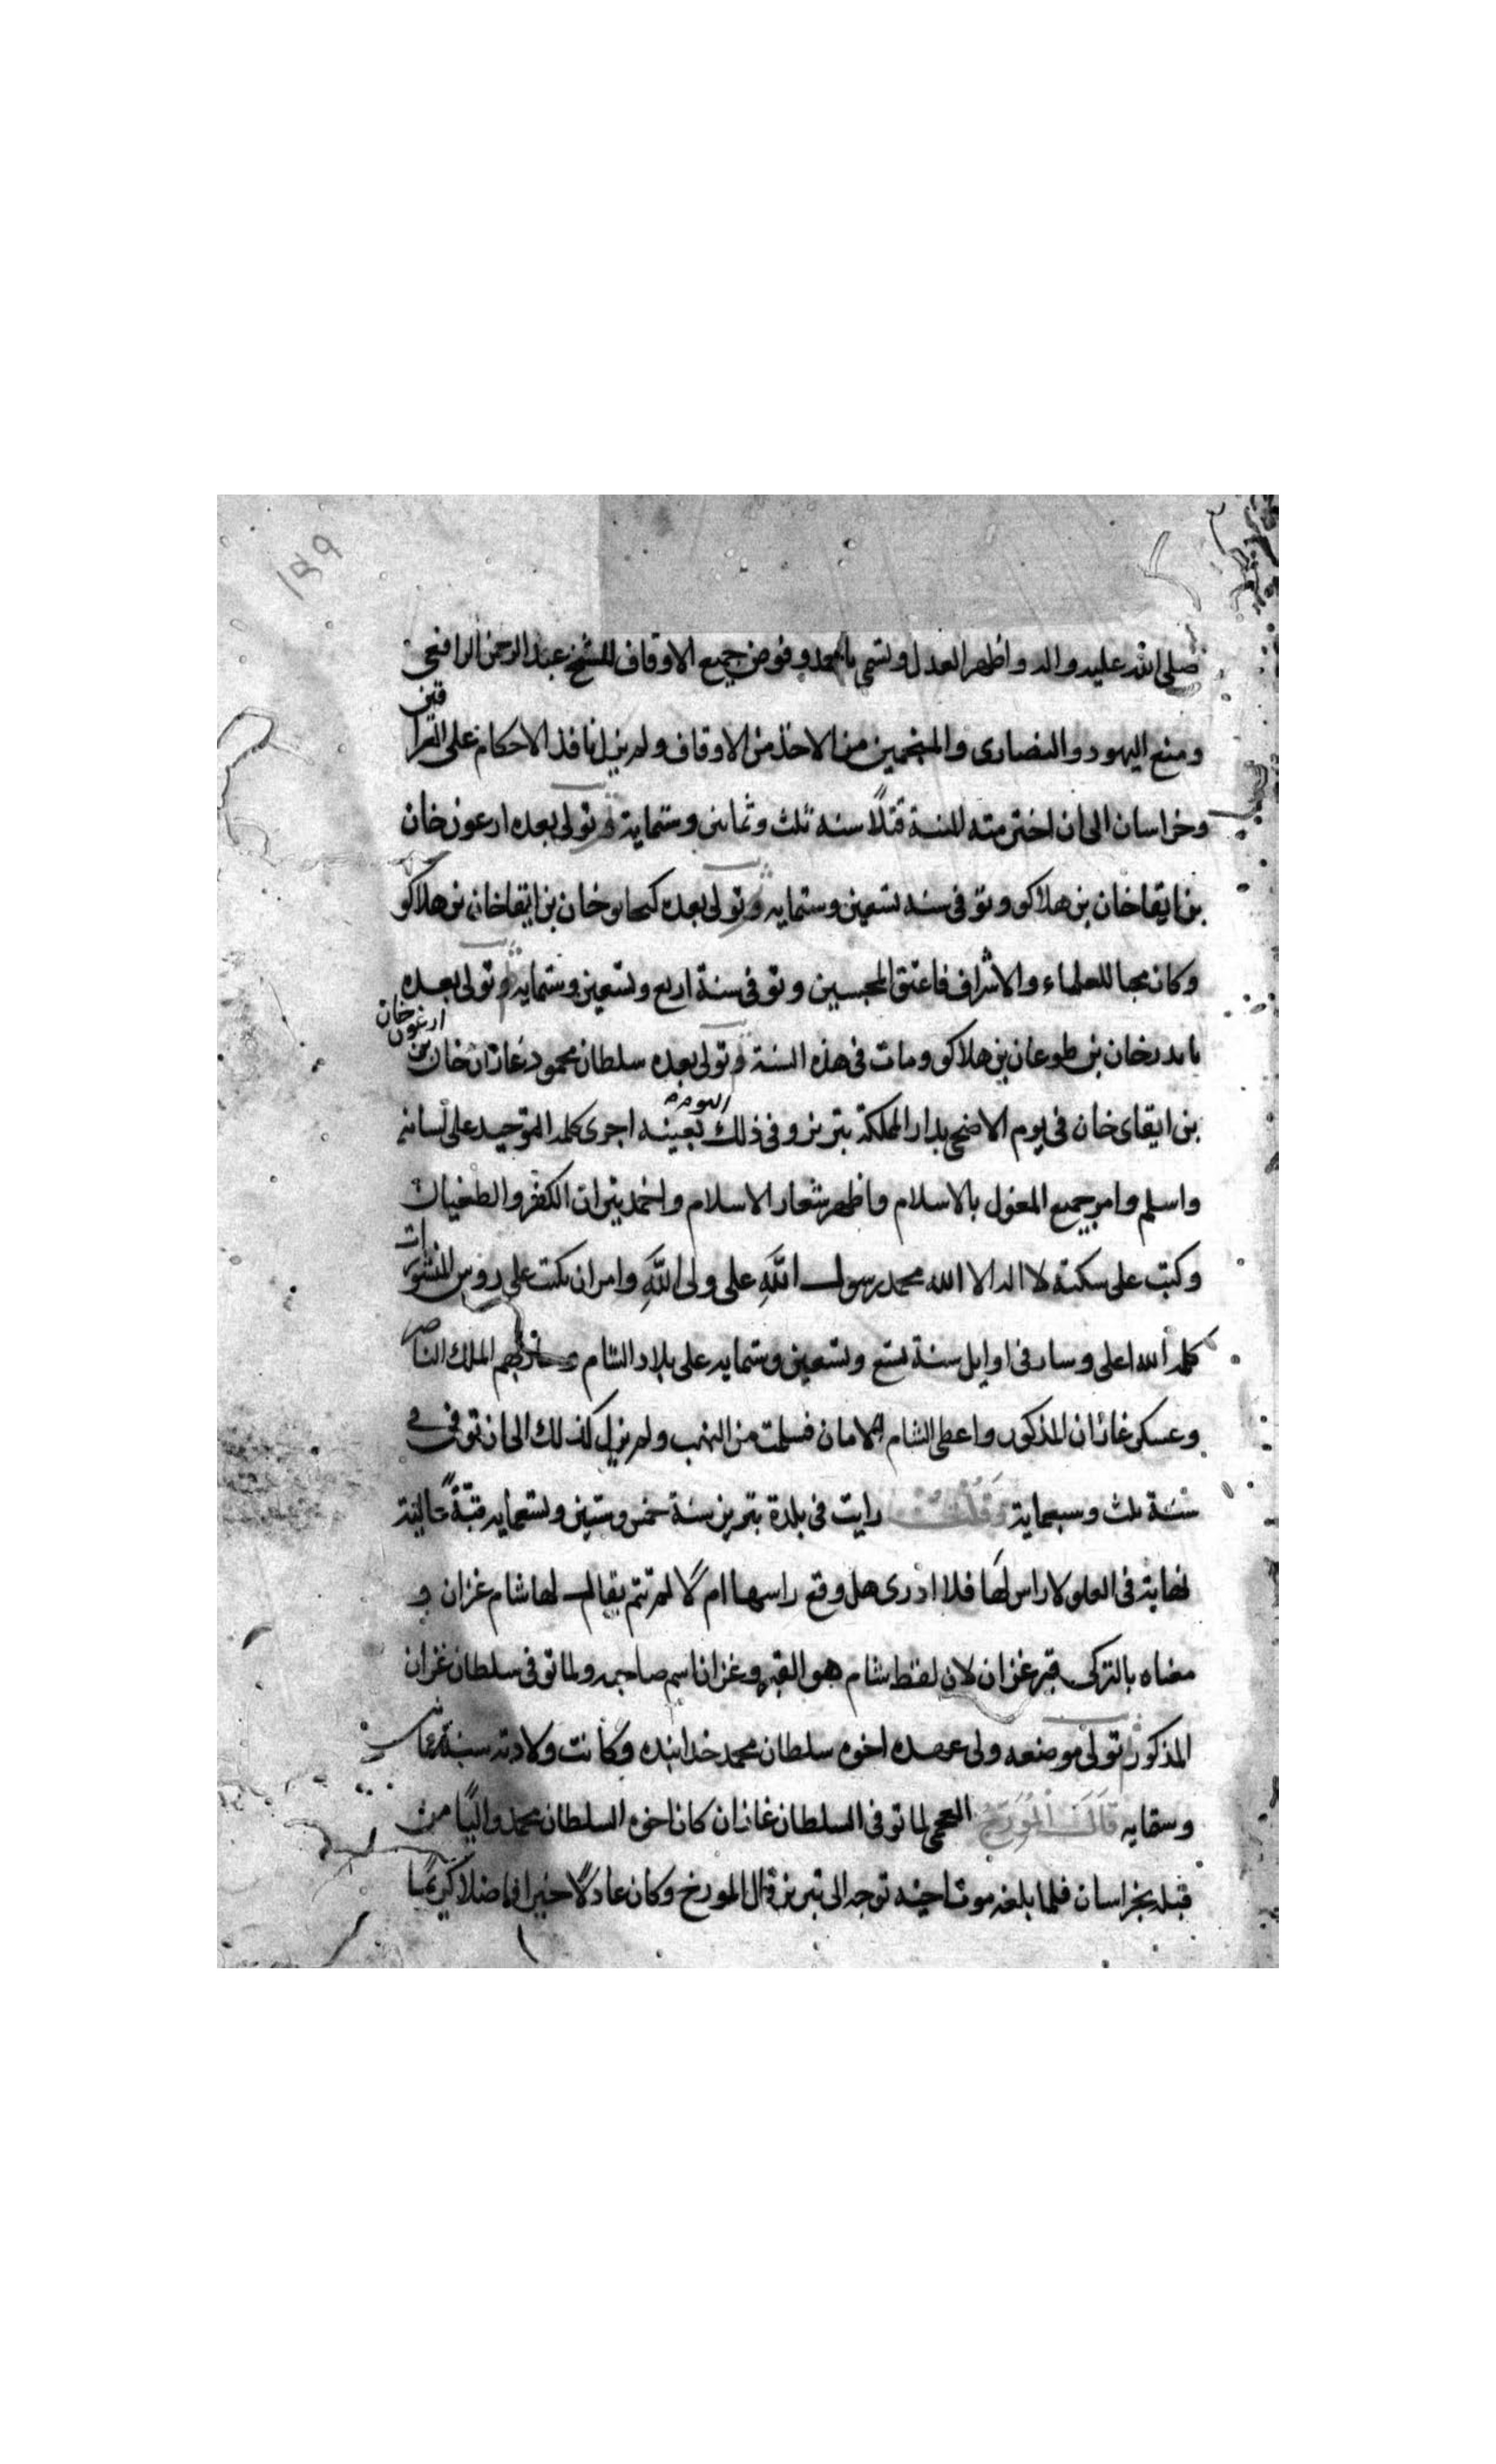 ١٨٩
صلى الله عليه واله واظهر العدل وتسمى باحمد وفوض جميع الاوقاف للشيخ عبد الرحمن الرافعى
ومنع اليهود والنصارى والمنجمين من الاخذ من الاوقاف ولم يزل نافذ الاحكام على العراقين
وخراسان الى ان اخترمته المنية قتلاً سنه ثلث وثمانين وستماية وتولى بعده ارعون خان
بن ايقا خان بن هلاكو وتوفى سنه تسعين وستمايه وتولى بعده كنجاتو خان بن ايقا خان بن هلاكو
وكان محبا للعلماء والاشراف فاعتق المحبسين وتوفى سنة اربع وتسعين وستمايه وتولى بعده
بايدر خان بن طوعان بن هلاكو ومات فى هذه السنة وتولى بعده سلطان محمود غازان خان بن ارغون خان
بن ايقاى خان فى يوم الاضحى بدار المملكة بتبريز وفى ذلك اليوم بعينه اجرى كلمة التوحيد على لسانه
واسلم وامر جميع المغول بالاسلام واظهر شعار الاسلام واخمد نيران الكفر والطغيان
وكتب على سكته لا اله الا الله محمد رسول الله على ولى الله وامر ان يكتب على روس المنشورات
كلمة الله اعلى وسار فى اوايل سنة تسع وتسعين وستمايه على بلاد الشام الملك الناصر
وعسكر غازان المذكور واعطى الشام الامان فسلمت من النهب ولم يزل كذلك الى ان توفى فى
سنة ثلث وسبعماية رايت فى بلدة تبريز سنة خمس وستين وتسعمايه قبّةً عالية
لغاية فى العلو لا راس لها فلا ادرى هل وقع راسها ام لا لم تتم يقال لها شام غزان و
معناه بالتركى قبر غزان لان لفظ شام هو القبر وغزان اسم صاحبه ولما توفى سلطان غزان
المذكور تولى موضعه ولى عهده اخوه سلطان محمد خدابنده وكانت ولادته سنة ثمانين
وستمايه قال المورخ العجمى لما توفى السلطان غازان كان اخوه السلطان محمد واليًا من
قبله بخراسان فلما بلغه موت اخيه توجه الى تبريز قال المورخ وكان عادلًا خيرا فاضلا كريمًا